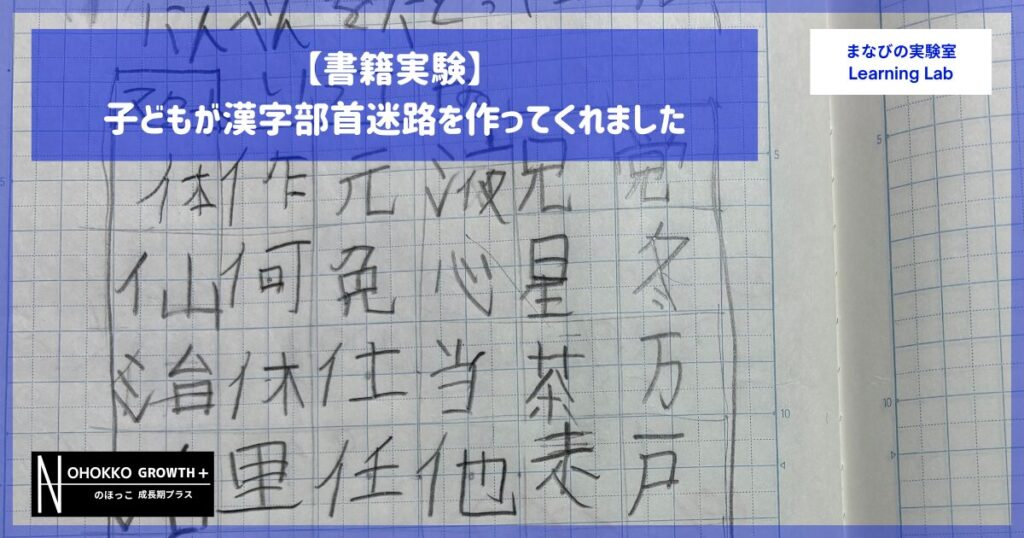 にんべんをたどって
【書籍実験】
子どもが漢字部首迷路を作ってくれました
まなびの実験室
Learning Lab
体 作 元 液 兄
仙 何 免 心 星 冬
治 休 仕 当 茶 万
里 任 他 表 戸
5
5
10
10
NOHOKKO GROWTH+
のほっこ 成長期プラス